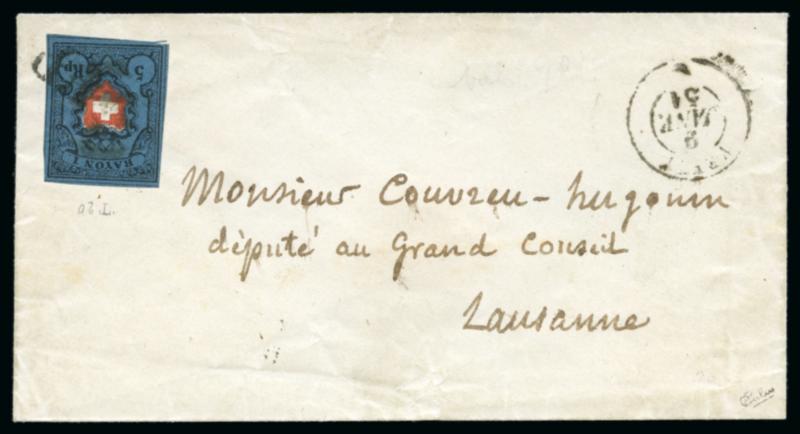 5 Rp
RAYON I
9
JANR
51
Monsieur Couvreu - hugonin
député au Grand Conseil
Lausanne
T. 20